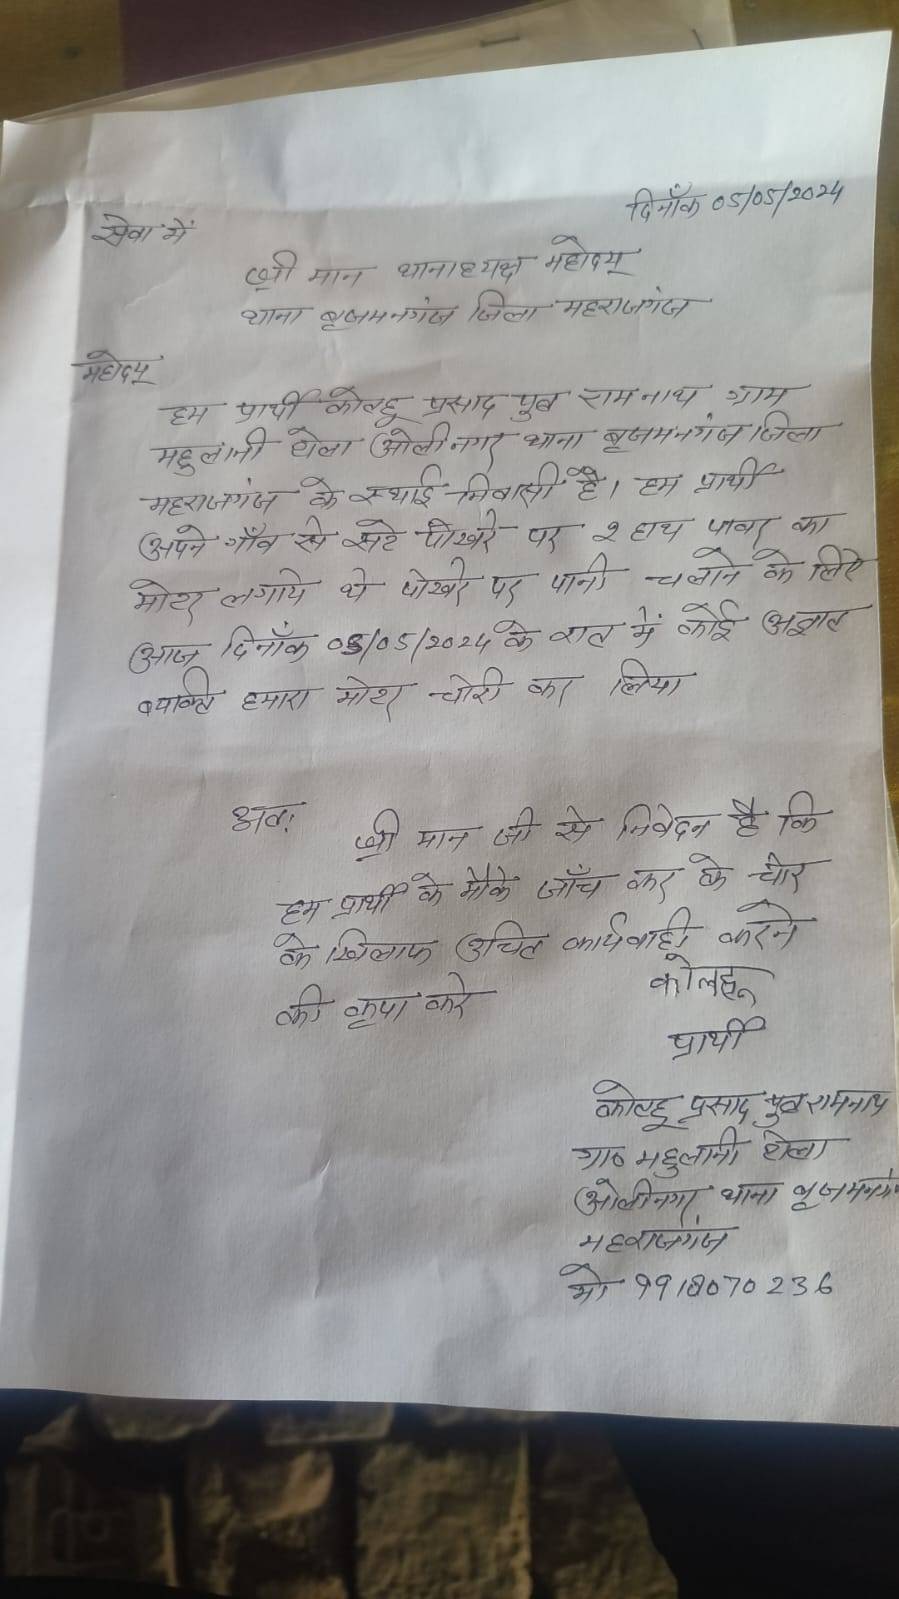 दिनाँक 05/05/2024
सेवा में
श्री मान थानाध्यक्ष महोदय
थाना बृजमनगंज जिला महराजगंज
महोदय
हम प्रार्थी कोल्हू प्रसाद पुत्र रामनाथ ग्राम
महुलानी टोला ओलीनगर थाना बृजमनगंज जिला
महराजगंज के स्थाई निवासी है। हम प्रार्थी
अपने गाँव से सटे पोखरे पर २ हाथ पावर का
मोटर लगाये थे पोखरे पर पानी चलाने के लिए
आज दिनाँक 05/05/2024 के रात में कोई अज्ञात
व्यक्ति हमारा मोटर चोरी कर लिया
अतः
श्री मान जी से निवेदन है कि
हम प्रार्थी के मौके जाँच कर के चोर
के खिलाफ उचित कार्यवाही करने
की कृपा करे
कोलहू
प्रार्थी
कोल्हू प्रसाद पुत्र रामनाथ
ग्रा० महुलानी टोला
ओलीनगर थाना बृजमनगंज
महराजगंज
मो 9918070236